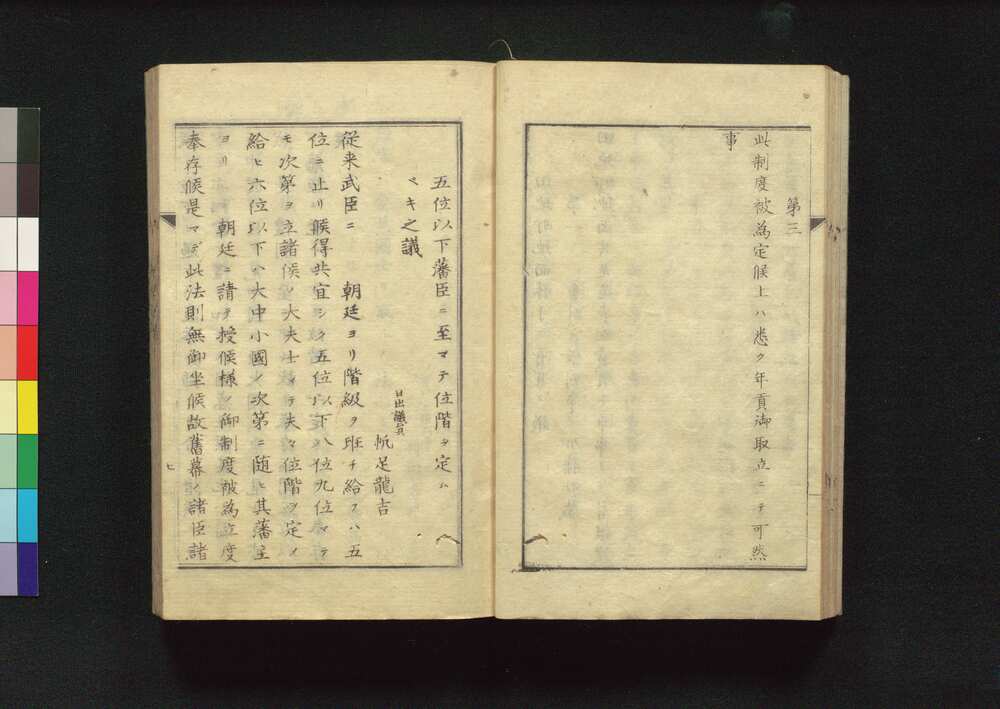 第三
此制度被為定候上ハ悉ク年貢御取立ニテ可然
事
五位以下藩臣ニ至マテ位階ヲ定ム
ベキ之議
日出議員
帆足龍吉
従来武臣ニ 朝廷ヨリ階級ヲ班チ給フハ五
位ニ止リ候得共宜シク五位以下八位九位マテ
モ次第ヲ立諸侯ノ大夫士マテ夫々位階ヲ定メ
給ヒ六位以下ハ大中小國ノ次第ニ随ヒ其藩主
ヨリ 朝廷ニ請テ授候様ノ御制度被為立度
奉存候是マデ此法則無御坐候故舊幕ノ諸臣諸
七